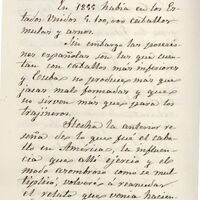 En 1855 había en los Es-
tados Unidos 5.100,000 caballos
mulas y asnos.
Sin embargo las posesio-
nes españolas son las que cuen-
tan con caballos más inferiores
y Cuba no produce más que
jacas mal formadas y que
no sirven más que para los
trajineros.
Hecha la anterior re-
seña de lo que fué el caba-
llo en América, la influen-
cia que allí ejerció y el
modo asombroso como se mul-
tiplicó, volveré a reanudar
el relato que venía hacien-